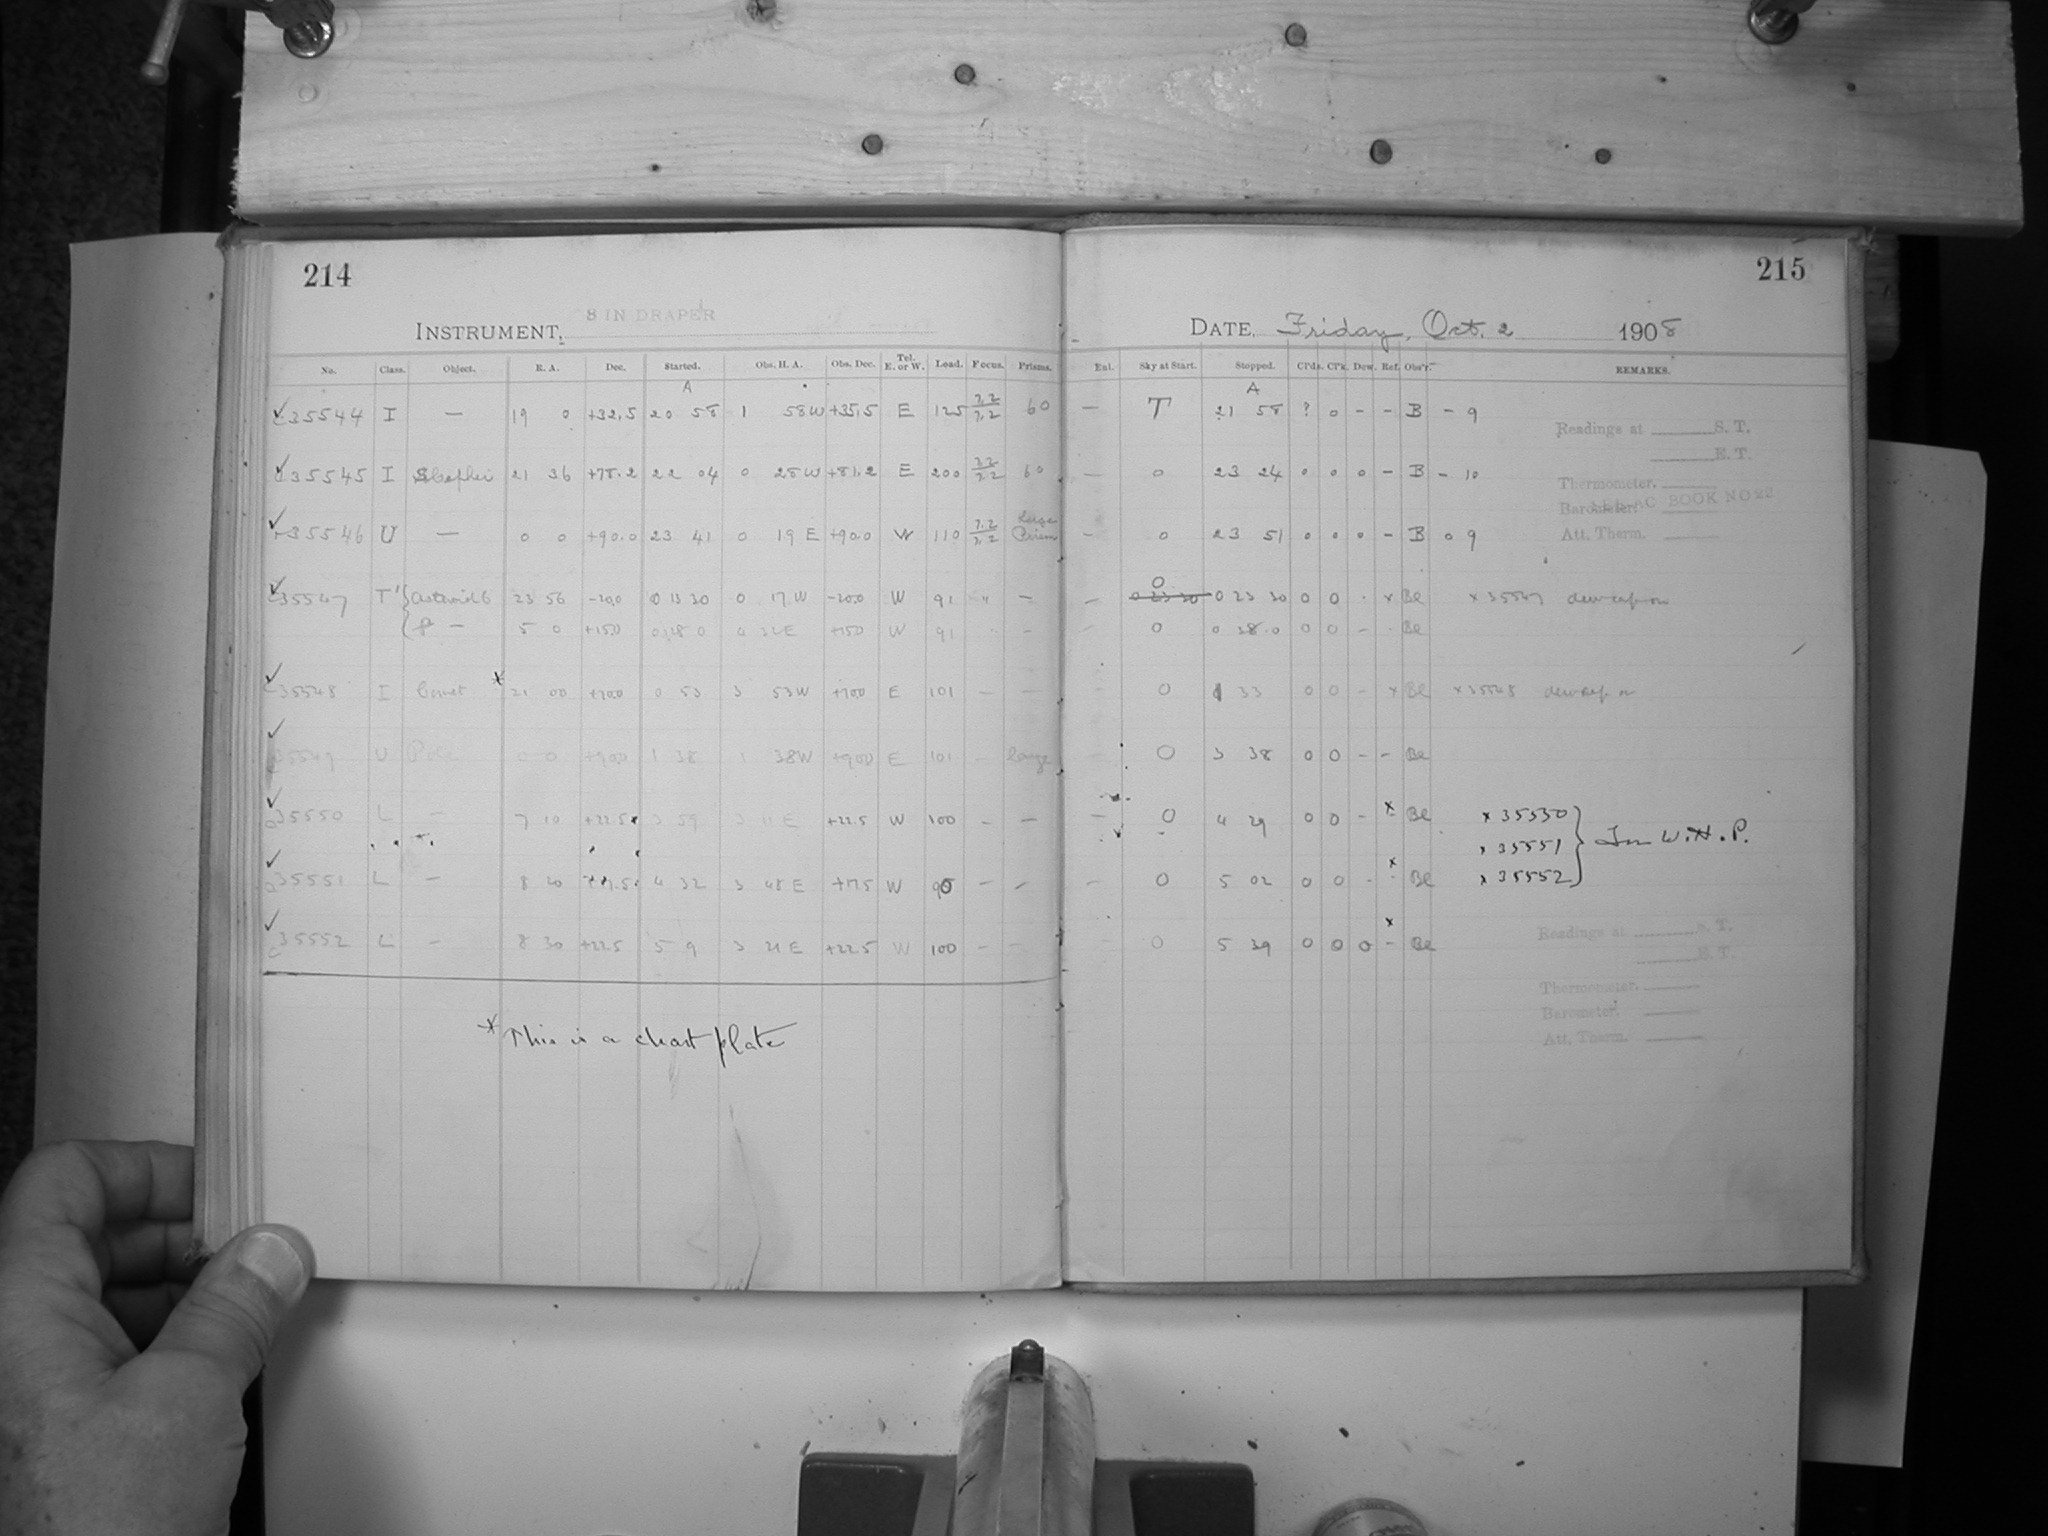 214
8 IN DRAPER
INSTRUMENT,
No. Class. Object. R. A. Dec. Started. Obs. H. A. Obs. Dec. Tel. E. or W. Load. Focus. Prisms.
A
35544 I — 19 0 +32.5 20 58 1 58W +35.5 E 125 60
35545 I 21 36 +78.2 22 04 0 28W +81.2 E 200 60
35546 U — 0 0 +90.0 23 41 0 19 E +90.0 W 110 Large Prism
35547 T' Asteroid 6 23 56 -20.0 0 13 30 0 17 W -20.0 W 91 —
— 5 0 +15.0 +15.0 W 91 -
35548 I Comet * 21 00 +70.0 0 53 3 53W +70.0 E 101 — —
35549 U Pole 0 0 +90.0 1 38 1 38W +90.0 E 101 - large
35550 L — 7 10 +22.5 3 59 3 11 E +22.5 W 100 - —
35551 L — 8 20 4 32 3 48 E +17.5 W - -
35552 L — 8 30 +22.5 5 9 3 21 E +22.5 W 100 - -
* This is a chart plate
215
DATE, Friday, Oct. 2 1908
Enl. Sky at Start. Stopped. Cl'ds. Cl'k. Dew. Ref. Obs'r. REMARKS.
A
— T 21 58 ? 0 - - B - 9
Readings at S. T.
E. T.
— 0 23 24 0 0 0 - B - 10
Thermometer.
Barometer. BOOK NO 22
- 0 23 51 0 0 0 - B 0 9
Att. Therm.
0
- 0 23 30 0 23 30 0 0 . x Be x 35547
- 0 0 38.0 0 0 - . Be
- 0 1 33 0 0 - x Be x 35548
- 0 3 38 0 0 - - Be
- 0 4 29 0 0 - x Be x 35550
x 35551 } For W.H.P.
- 0 5 02 0 0 . x Be x 35552
0 5 39 0 0 0 x Be
Readings at S. T.
E. T.
Thermometer.
Barometer.
Att. Therm.